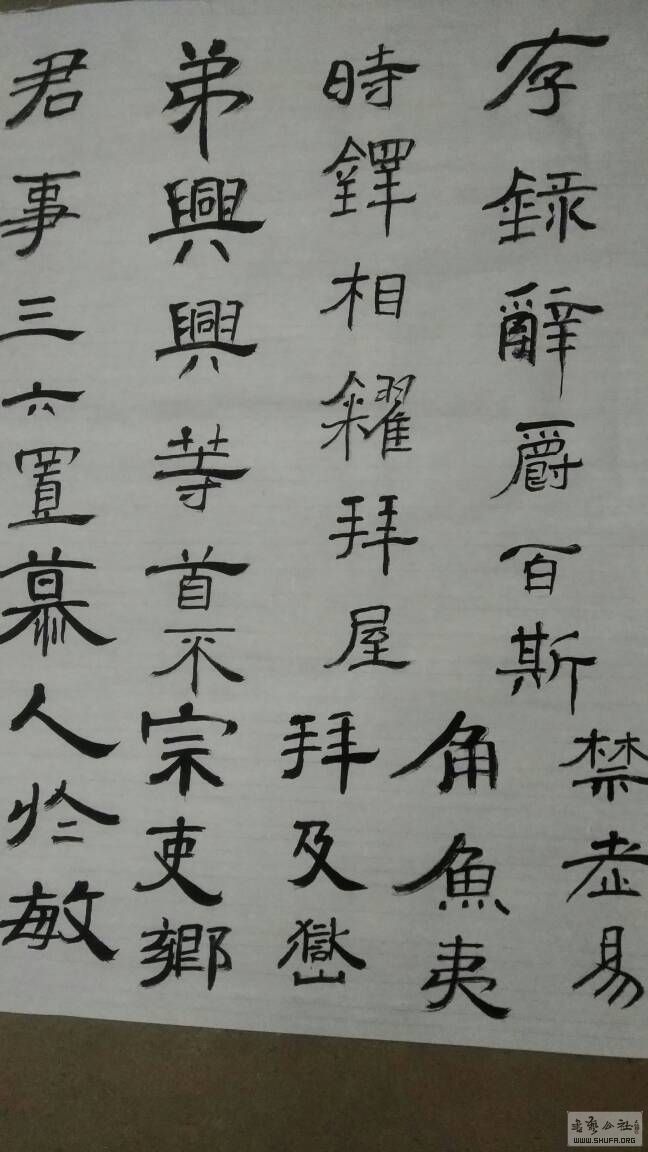 存録辭爵百斯
禁易
角魚夷
時鐸相拜屋
拜及嶽
弟興興等首不宗吏鄉
君事三六置慕人於敏
WWW.SHUFA.ORG